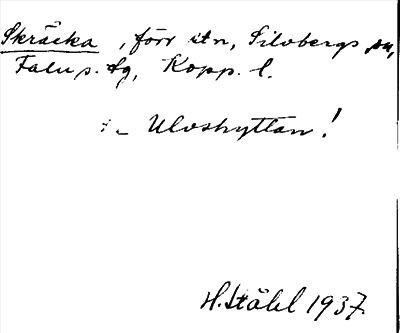 Skräcka, förr itn, Silvbergs sn,
Falu s. dg, Kopp. l.
:_ Ulvshyttan!
H. Ståhl 1937.